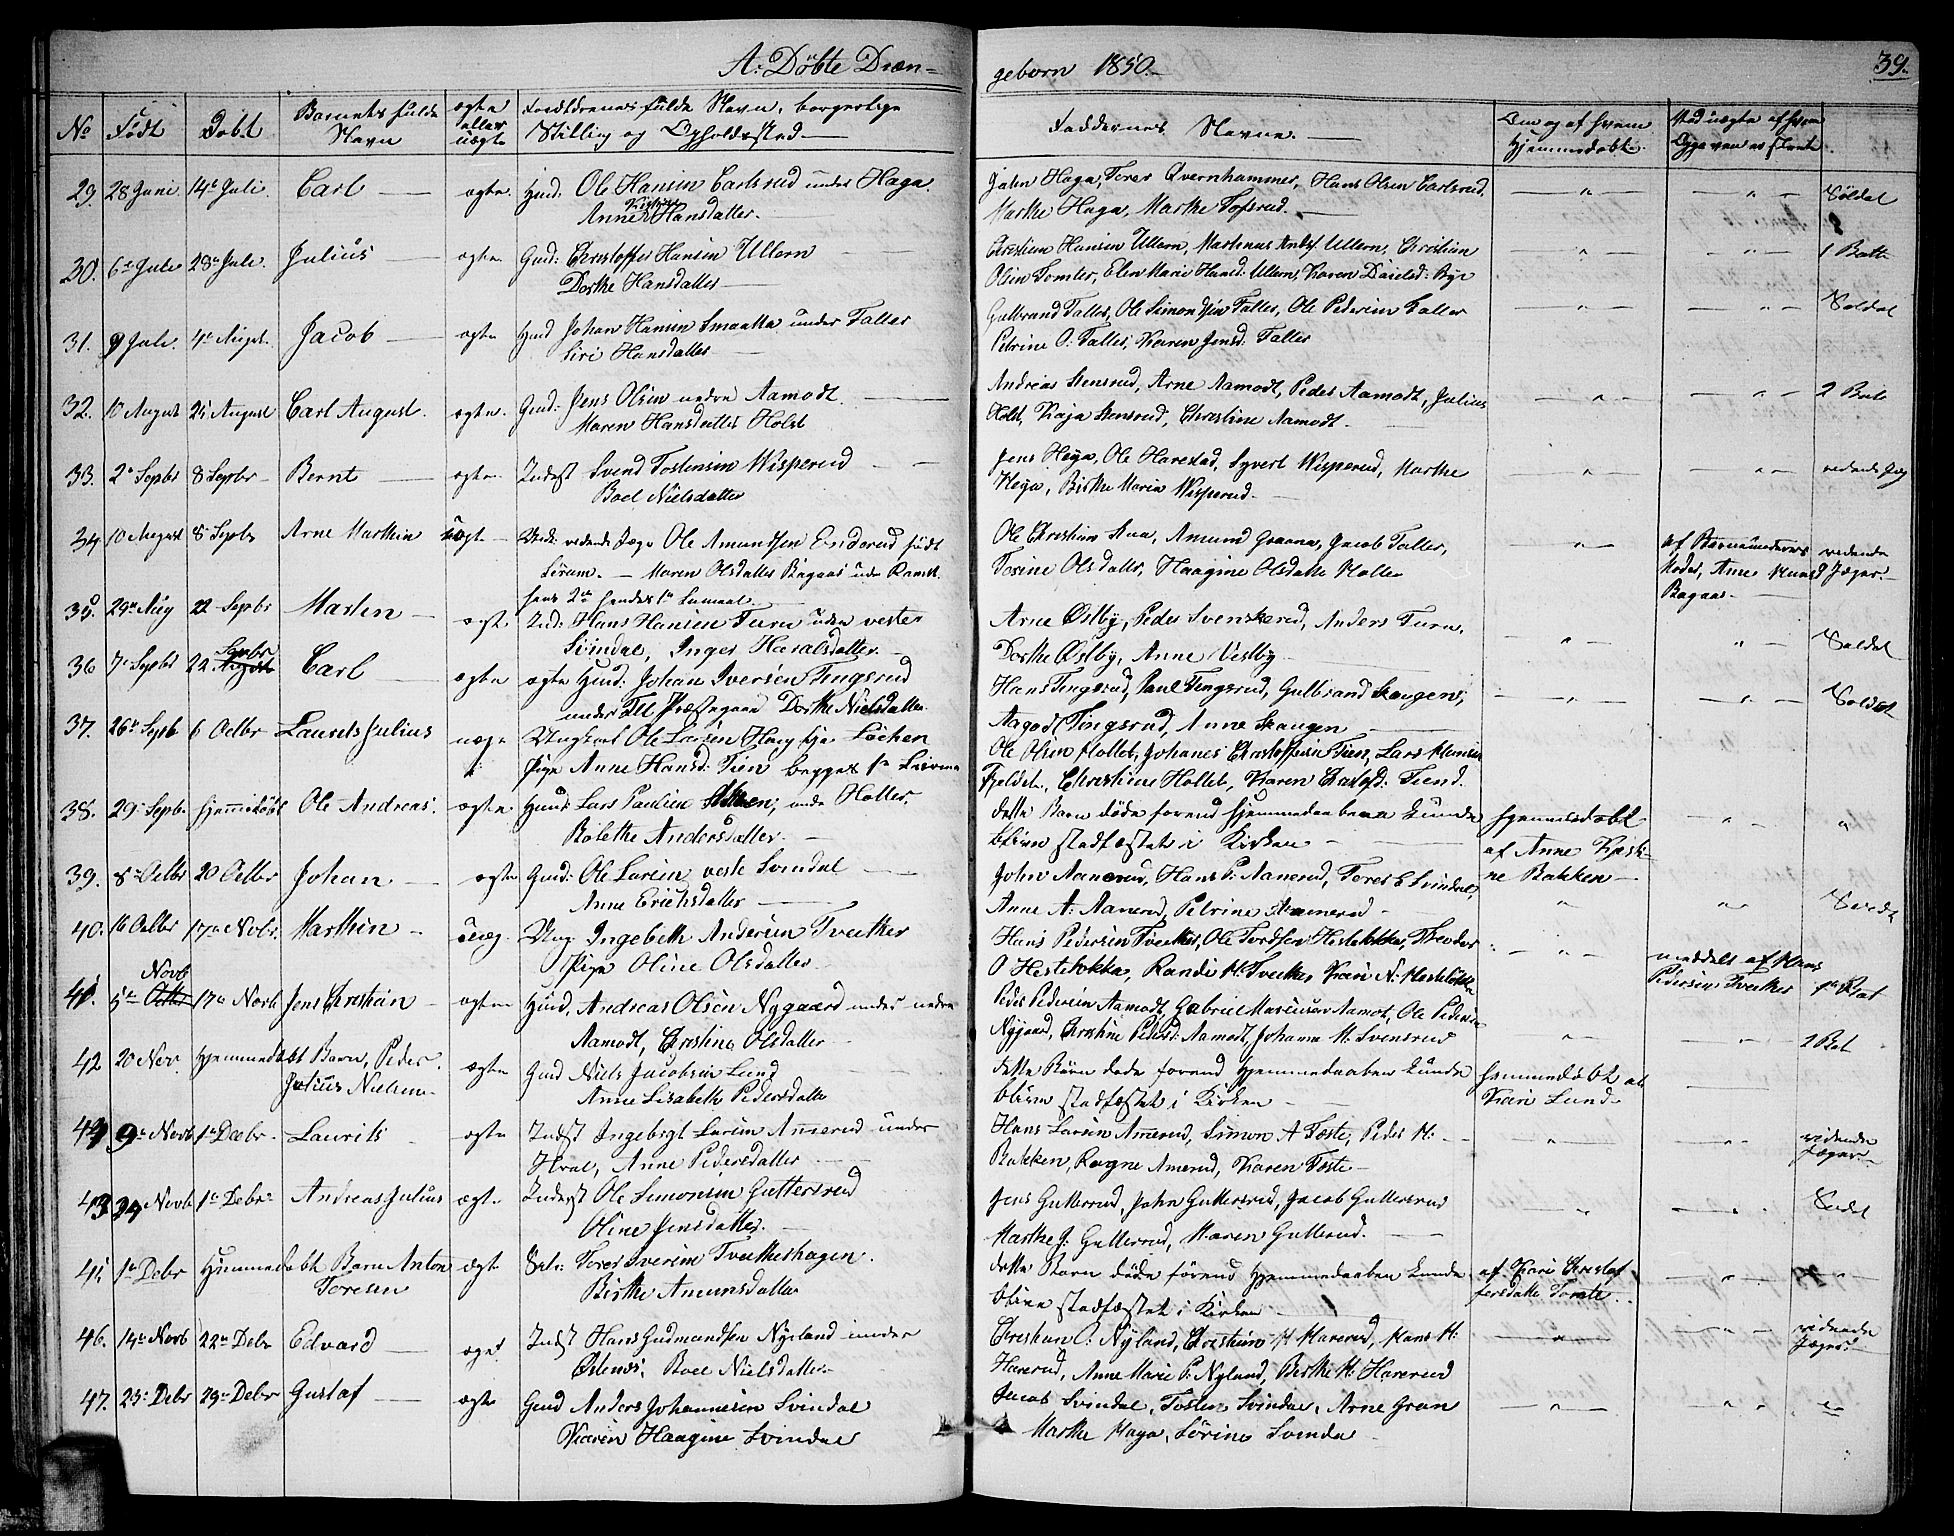 A: Döbte Dren=
geborn 1850.
39.
No
Födt
Dobt
Barnets fulde Navn
ægte eller uægte
Forældrenes fulde Navn, borgerlige Stilling og Opholdssted.
Faddernes Navne.
Om og af hvem hjemmedobt.
29. 28 Juni 14de Juli. Carl — ægte. Huusd: Ole Hansen Carlsrud under Haga.
Anne Kirstine Hansdatter.
John Haga, Tores Qvernhammer, Hans Olsen Carlsrud,
Marthe Haga, Marthe Tofsrud.
Soldat
30. 6te Juli 28de Juli. Julius ægte. Gmd: Christoffer Hansen Ullern
Dorthe Hansdatter
Christian Hansen Ullern, Martinus Ullern, Christian
Olsen Tomter, Elen Marie Hansd: Ullern, Karen Danielsd: Bye
1 Batt
31. 9 Juli. 4de August. Jacob — ægte Huusd Johan Hansen Smaatta under Faller
Siri Hansdatter
Gulbrand Faller, Ole Simondsen Faller, Ole Pedersen Faller
Petrine O: Faller, Karen Jensd: Faller
Soldat
32. 10 August 25 August Carl August. ægte. Gmd: Jens Olsen nedre Aamodt.
Maren Hansdatter Holst
Andreas Stensrud, Arne Aamodt, Peder Aamodt, Julius
Holst, Kaja Stensrud, Christine Aamodt.
2 Bat
33. 2de Septbr 8 Septbr Bernt — ægte. Inderst Svend Tostensen Wisperud
Boel Nielsdatter
Jens Haga, Ole Harestad, Syvert Wisperud, Marthe
Haga, Birthe Maria Wisperud.
ridende Jæg
34 10 August 8 Septbr Arne Marthin uægte ridende Jæger Ole Amundsen Enderud födt
Sörum. — Maren Olsdatter Bagaas under
hans 2det hendes 1ste
Ole Christian, Amund Graana, Jacob Faller,
Torine Olsdatter, Haagine Olsdatter Holter
af Barnemoderens
Moder, Anne
Bagaas.
ridende
Jæger.
35. 29de Aug 22 Septbr Marten — ægte Ind: Hans Hansen Furu under vestre
Svindal, Inger Haralsdatter.
Arne Østby, Peder Svenskerud, Anders Furu,
Dorthe Østby, Anne Vestby
Soldat
36 7de Septbr 22 Septbr Carl ægte ægte Huusd: Johan Iversen Tingsrud
under Præstegaard Dorthe Nielsdatter
Hans Tingsrud, Paul Tingsrud, Gulbrand Haugen,
Aagodt Tingsrud, Anne Haugen
Soldat
37. 26de Septb 6 Octbr Laurits Julius uægte Ungkarl Ole Larsen Haug
Pige Anne Hansd: Tien begges 1ste
Ole Olsen Hollet, Johanes Christoffersen Tien, Lars Hansen
Fjeldet, Christine Hollet, Karen Christofd: Tiend.
38. 29 Septb. hjemmedöbt Ole Andreas. ægte. Huusd: Lars Paulsen, under Holter.
Bolette Andersdatter.
dette Barn döde forend hjemmedaaben kunde
bliven stadfæstet i Kirken
hjemmedobt
af Anne Kirsti-
ne Bakken
39. 8de Octbr 20 Octbr Johan — ægte Gmd: Ole Larsen vestre Svindal
Anne Erichsdatter
John Aanerud, Hans P: Aanerud, Tores E Svindal,
Anne A: Aanerud, Petrine Aanerud
Soldat
40. 16 Octbr 17de Novbr. Marthin — uæg. Ung Ingebreth Andersen Tveeter
Pige Oline Olsdatter
Hans Pedersen Tveeter, Ole Tordsen Hestelökka, Theodor
O Hestelokka, Randi H: Tveeter, Kari N: Hestelökka
meddelt af Hans
Pedersen Tveeter
41. 5te Novb 17de Novb Jens Christian ægte Huusd, Andreas Olsen Nygaard under nedre
Aamodt, Christine Olsdatter
Peder Pedersen Aamodt, Gabriel Marcusen Aamot, Ole Pedersen
Nygaard, Christine Pedersd: Aamodt, Johanne H: Svensrud
2 Bat
42 20 Nov. Hjemmedöbt Barn, Peder
Julius Nielsen ægte Gmd Niels Jacobsen Lund
Anne Lisabeth Pedersdatter
dette Barn döde forend hjemmedaaben kunde
bliven stadfæstet i Kirken
hjemmedöbt af
Kari Lund
44 9de Novb 1ste Decbr. Laurits ægte Inderst Ingebrigt Larsen Amerud under
Hval, Anne Pedersdatter
Hans Larsen Amerud, Simon A Toste, Peder H:
Bakken, Ragne Amerud, Karen Toste
ridende
Jæger
43 Novb 1ste Debr. Andreas Julius ægte Inderst Ole Simonsen Guttersrud
Oline Jensdatter.
Jens Guttersrud, John Guttersrud, Jacob Guttersrud
Marthe J: Gullersrud, Maren Gullerud.
Soldat
1ste Debr Hjemmedobt Barn Anton
Toresen ægte Tores Iversen Tveeterhagen.
Birthe Amunsdatter
dette Barn döde förend hjemmedaaben kunde
bliven stadfæstet i Kirken
af Kari Christof
fersdatter
46. 14de Novb 22de Debr Edvard ægte Inderst Hans Gudmundsen Nyland under
Boel Nielsdatter
Christian O: Nyland, Christian H Harerud, Hans H:
Harerud, Anne Marie P: Nyland, Berthe H: Harerud
ridende
Jæger
47. Debr 29de Debr Gustaf — ægte Gmd Anders Johannesen Svindal
Karen Haagine Svindal
Jacob Svindal, Tosten Svindal, Arne Gran
Marthe Haga, Sörine Svindal